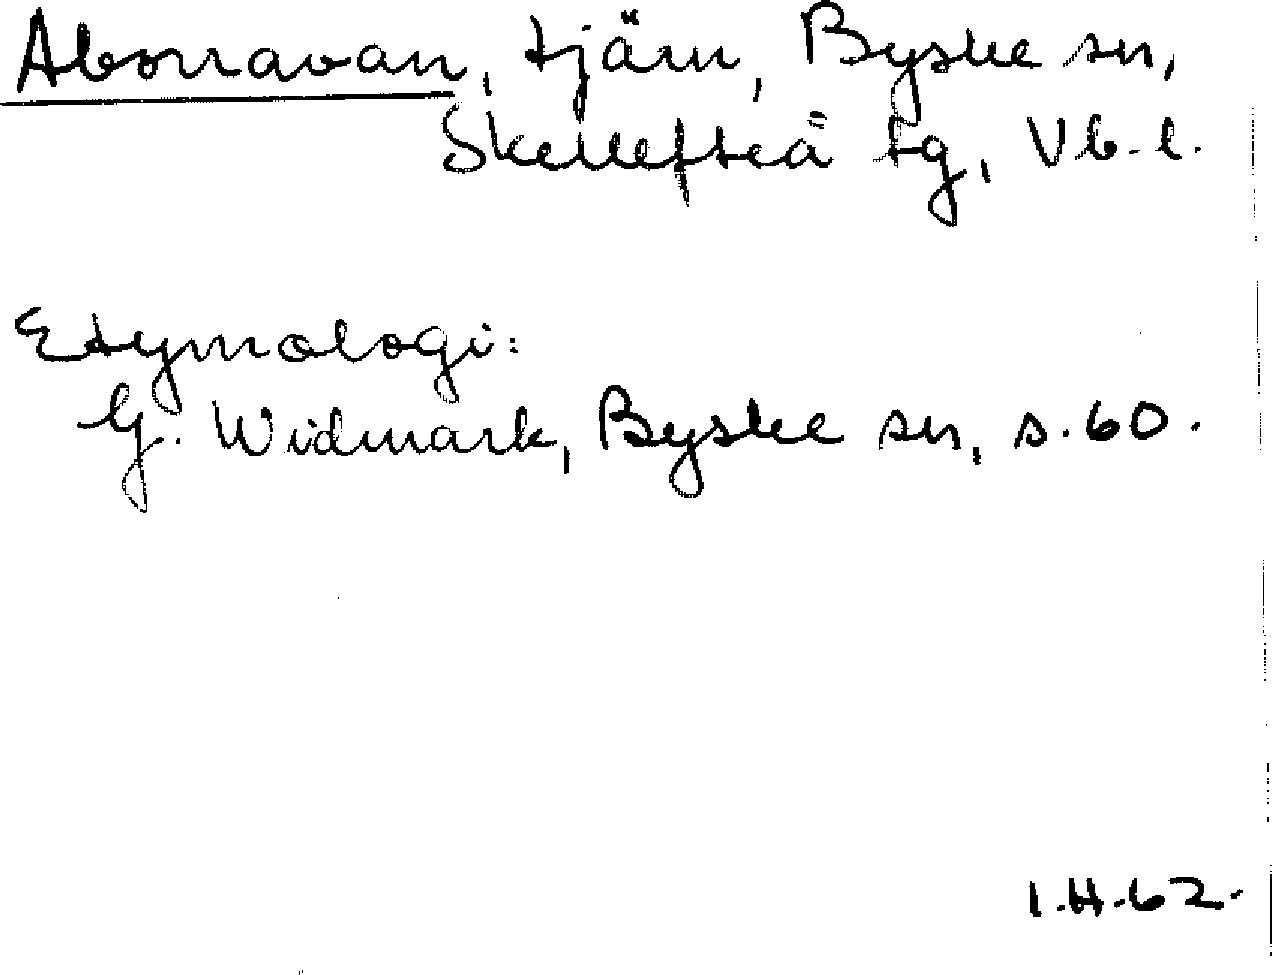 Aborravan, tjärn, Byske sn,
Skellefteå tg, Vb. l.
Etymologi:
G. Widmark, Byske sn, s. 60.
I.H.62.